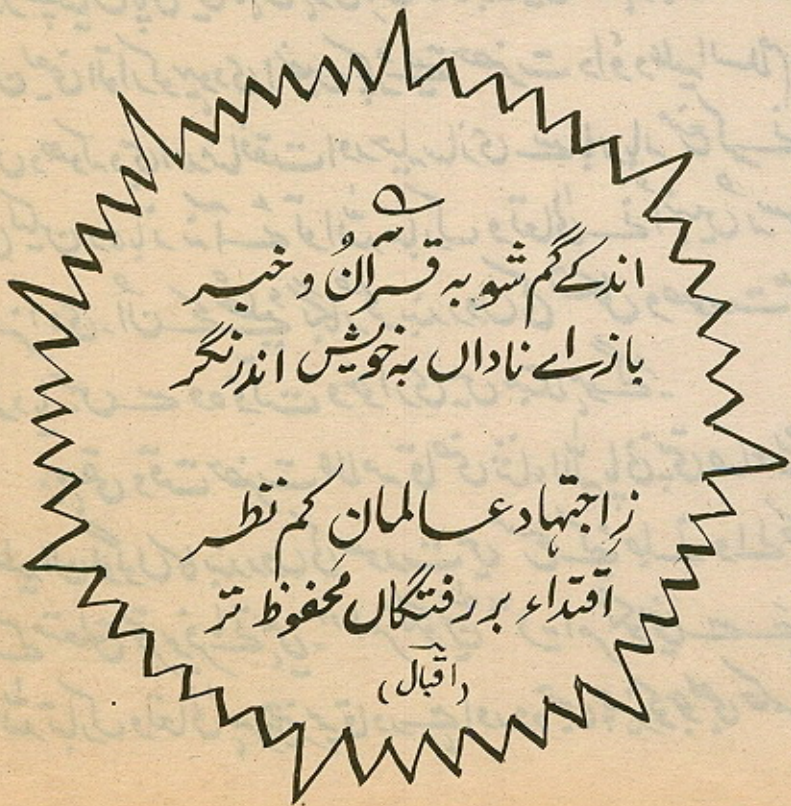 اندکے گم شو بہ قرآنُ و خبر
باز اے ناداں بہ خویش اندر نگر
زِ اجتہاد عالمانِ کم نظر
اقتداء بر رفتگاں محفوظ تر
(اقبال)